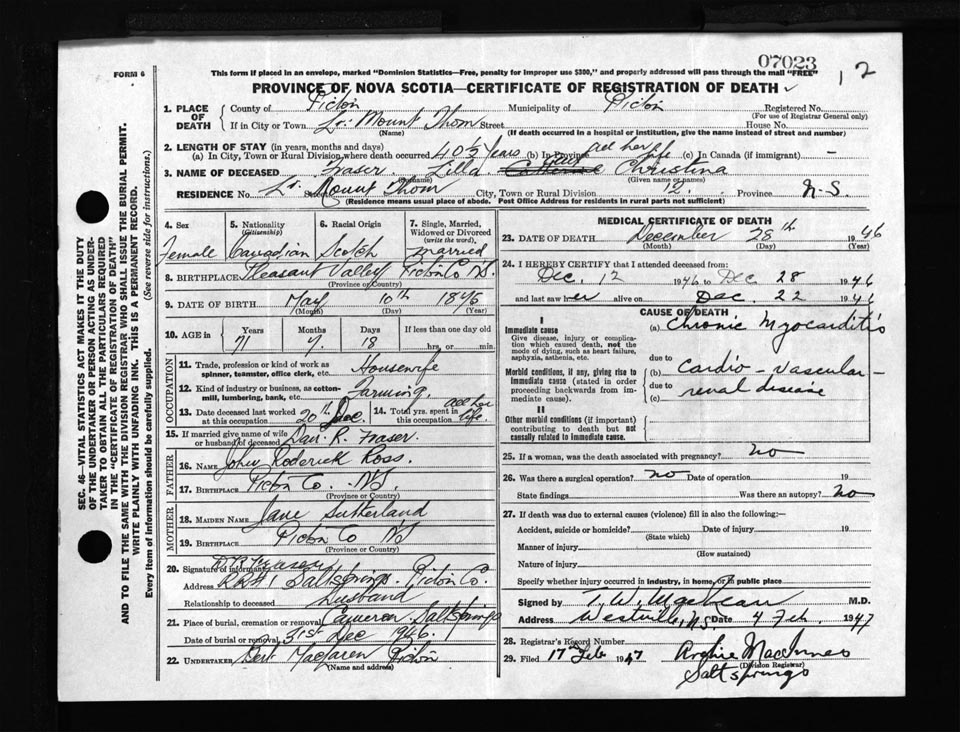 07023
FORM 6
This form if placed in an envelope, marked "Dominion Statistics—Free, penalty for improper use $300," and properly addressed will pass through the mail "FREE"
12
PROVINCE OF NOVA SCOTIA—CERTIFICATE OF REGISTRATION OF DEATH
1. PLACE OF DEATH
County of Pictou Municipality of Pictou Registered No.
(For use of Registrar General only)
If in City or Town Lr. Mount Thom Street House No.
(Name) (If death occurred in a hospital or institution, give the name instead of street and number)
2. LENGTH OF STAY (in years, months and days)
(a) In City, Town or Rural Division where death occurred 40½ years (b) In Province all her life (c) In Canada (if immigrant) —
3. NAME OF DECEASED Fraser Christina
(Given name or names)
RESIDENCE No. Lr. Street Mount Thom City, Town or Rural Division 12. Province N-S.
(Residence means usual place of abode. Post Office Address for residents in rural parts not sufficient)
4. Sex
Female
5. Nationality
(Citizenship)
Canadian
6. Racial Origin
Scotch
7. Single, Married, Widowed or Divorced
(write the word)
married
8. BIRTHPLACE Pleasant Valley Pictou Co N.S.
(Province or Country)
9. DATE OF BIRTH May 10th 1875
(Month) (Day) (Year)
10. AGE in
Years Months Days If less than one day old
71 7. 18 hrs. or min.
OCCUPATION
11. Trade, profession or kind of work as spinner, teamster, office clerk, etc. Housewife
12. Kind of industry or business, as cotton-mill, lumbering, bank, etc. Farming.
13. Date deceased last worked at this occupation 20th Dec.
14. Total yrs. spent in this occupation all her life.
15. If married give name of wife or husband of deceased Dan. R. Fraser
FATHER
16. NAME John Roderick Ross
17. BIRTHPLACE Pictou Co. N.S.
(Province or Country)
MOTHER
18. MAIDEN NAME Jane Sutherland
19. BIRTHPLACE Pictou Co NS
(Province or Country)
20. Signature of informant D R Fraser
Address RR#1 Saltsprings. Pictou Co.
Relationship to deceased Husband
21. Place of burial, cremation or removal Cameron Saltsprings
Date of burial or removal 31st Dec 1946.
22. UNDERTAKER Bert MacLaren Pictou
(Name and address)
MEDICAL CERTIFICATE OF DEATH
23. DATE OF DEATH December 28th 1946
(Month) (Day) (Year)
24. I HEREBY CERTIFY that I attended deceased from:
Dec. 12 1946 to Dec 28 1946
and last saw her alive on Dec. 22 1946
CAUSE OF DEATH
I
Immediate cause
Give disease, injury or complication which caused death, not the mode of dying, such as heart failure, asphyxia, asthenia, etc.
(a) Chronic Myocarditis
due to
Morbid conditions, if any, giving rise to immediate cause (stated in order proceeding backwards from immediate cause).
(b) Cardio-vascular-
due to renal disease
(c)
II
Other morbid conditions (if important) contributing to death but not causally related to immediate cause.
25. If a woman, was the death associated with pregnancy? no
26. Was there a surgical operation? no Date of operation 19
State findings Was there an autopsy? no
27. If death was due to external causes (violence) fill in also the following:—
Accident, suicide or homicide? Date of injury 19
(State which)
Manner of injury
(How sustained)
Nature of injury
Specify whether injury occurred in industry, in home, or in public place
Signed by T. W. M.D.
Address Westville, N.S. Date 4 Feb. 1947
28. Registrar's Record Number
29. Filed 17th Feb 1947 Archie MacInnes
(Division Registrar)
Saltsprings
SEC. 46—VITAL STATISTICS ACT MAKES IT THE DUTY
OF THE UNDERTAKER OR PERSON ACTING AS UNDER-
TAKER TO OBTAIN ALL THE PARTICULARS REQUIRED
IN THE "CERTIFICATE OF REGISTRATION OF DEATH"
AND TO FILE THE SAME WITH THE DIVISION REGISTRAR WHO SHALL ISSUE THE BURIAL PERMIT.
WRITE PLAINLY WITH UNFADING INK. THIS IS A PERMANENT RECORD.
Every item of information should be carefully supplied. (See reverse side for instructions.)